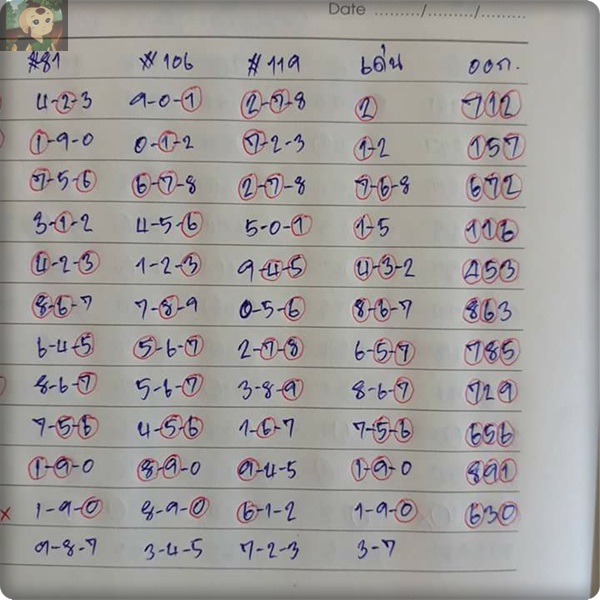 Date ........./........./.........
#81 #106 #119 เด่น ออก.
4-2-3 9-0-1 2-7-8 2 712
1-9-0 0-1-2 7-2-3 1-2 157
7-5-6 6-7-8 2-7-8 7-6-8 672
3-1-2 4-5-6 5-0-1 1-5 116
4-2-3 1-2-3 9-4-5 4-3-2 453
8-6-7 7-8-9 0-5-6 8-6-7 863
6-4-5 5-6-7 2-7-8 6-5-7 785
8-6-7 5-6-7 3-8-9 8-6-7 729
7-5-6 4-5-6 1-6-7 7-5-6 656
1-9-0 8-9-0 9-4-5 1-9-0 891
x 1-9-0 8-9-0 6-1-2 1-9-0 630
9-8-7 3-4-5 7-2-3 3-7